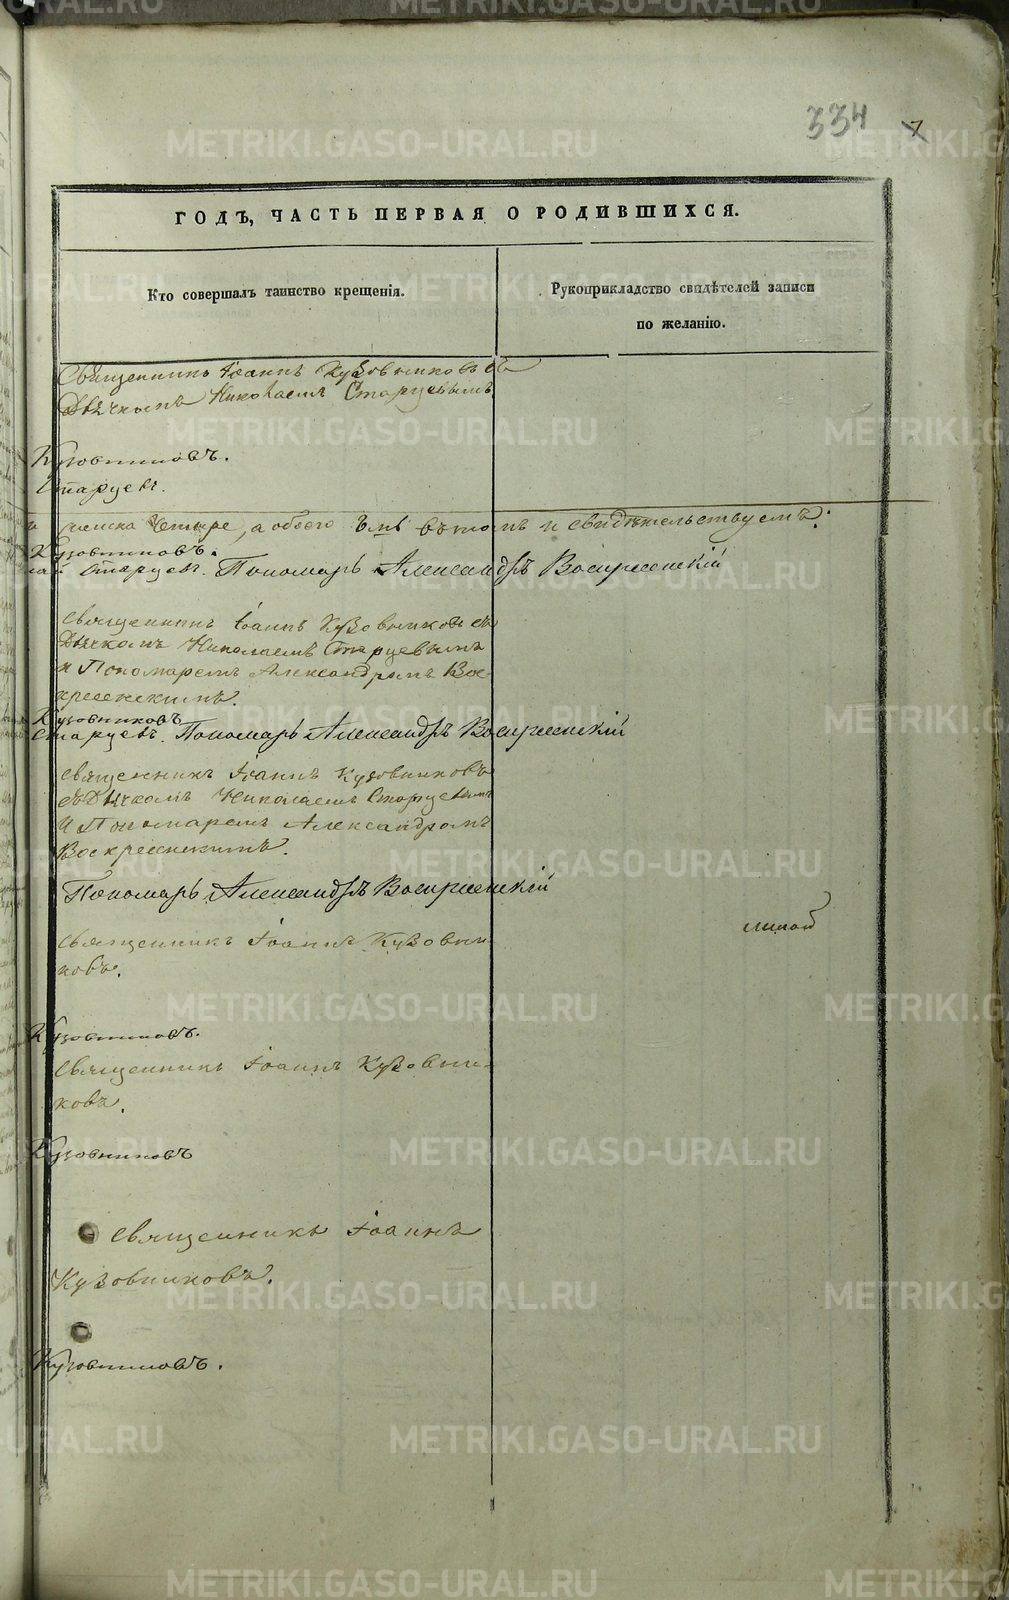 334 7
ГОДЪ, ЧАСТЬ ПЕРВАЯ О РОДИВШИХСЯ.
Кто совершалъ таинство крещенія.
Рукоприкладство свидѣтелей записи
по желанію.
Священникъ Іоаннъ Кузовниковъ съ
Дьячкомъ Николаемъ Старцевымъ
Кузовниковъ.
Старцевъ.
женска четыре, а обоего въ томъ и свидѣтельствуемъ:
Кузовниковъ.
Старцевъ. Пономарь Александръ Воскресенскій
Священникъ Іоаннъ Кузовниковъ съ
Дьячкомъ Николаемъ Старцевымъ
и Пономаремъ Александромъ Вос-
кресенскимъ.
Кузовниковъ
Старцевъ. Пономарь Александръ Воскресенскій
Священникъ Іоаннъ Кузовниковъ
съ Дьячкомъ Николаемъ Старцевымъ
и Пономаремъ Александромъ
Воскресенскимъ.
Пономарь Александръ Воскресенскій
Священникъ Іоаннъ Кузовни-
ковъ.
Кузовниковъ.
Священникъ Іоаннъ Кузовни-
ковъ.
Кузовниковъ
Священникъ Іоаннъ
Кузовниковъ.
Кузовниковъ.
METRIKI.GASO-URAL.RU